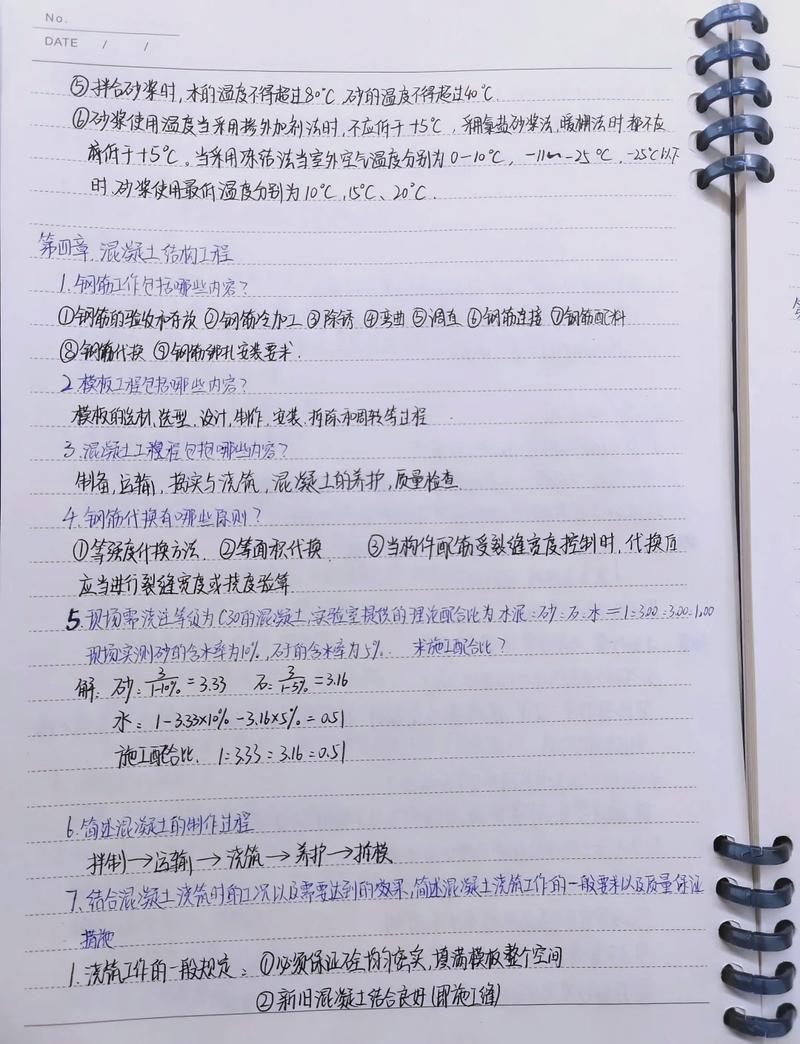 No.
DATE / /
⑤拌合砂浆时,水的温度不得超过80°C 砂的温度不得超过40°C.
⑥砂浆使用温度当采用掺外加剂法时,不应低于+5°C,采用氯盐砂浆法,暖棚法时都不应
低于+5°C。当采用冻结法当室外空气温度分别为0-10°C, -11~-25°C, -25°C以下
时.砂浆使用最低温度分别为10°C、15°C、20°C.
第四章.混凝土结构工程
1.钢筋工作包括哪些内容?
①钢筋的验收和存放 ②钢筋冷加工 ③除锈 ④弯曲 ⑤调直 ⑥钢筋连接 ⑦钢筋配料
⑧钢筋代换 ⑨钢筋绑扎安装要求.
2.模板工程包括哪些内容?
模板的选材,选型,设计,制作,安装,拆除和周转等过程
3.混凝土工程包括哪些内容?
制备,运输,捣实与浇筑,混凝土的养护,质量检查
4.钢筋代换有哪些原则?
①等强度代换方法. ②等面积代换. ③当构件配筋受裂缝宽度控制时,代换后
应当进行裂缝宽度或挠度验算
5.现场需浇注等级为C30的混凝土,实验室提供的理论配合比为水泥:砂:石:水=1:3.00:3.00:1.00
现场实测砂的含水率为10%,石子的含水率为5%. 求施工配合比?
解: 砂:3/1-10%=3.33 石:3/1-5%=3.16
水: 1-3.33×10%-3.16×5%=0.51
施工配合比. 1:3.33=3.16=0.51
6.简述混凝土的制作过程
拌制→运输→浇筑→养护→拆模
7.结合混凝土浇筑时的工况以及需要达到的效果,简述混凝土浇筑工作的一般要求以及质量保证
措施
1.浇筑工作的一般规定: ①必须保证砼均匀密实,填满模板整个空间
②新旧混凝土结合良好(即施工缝)